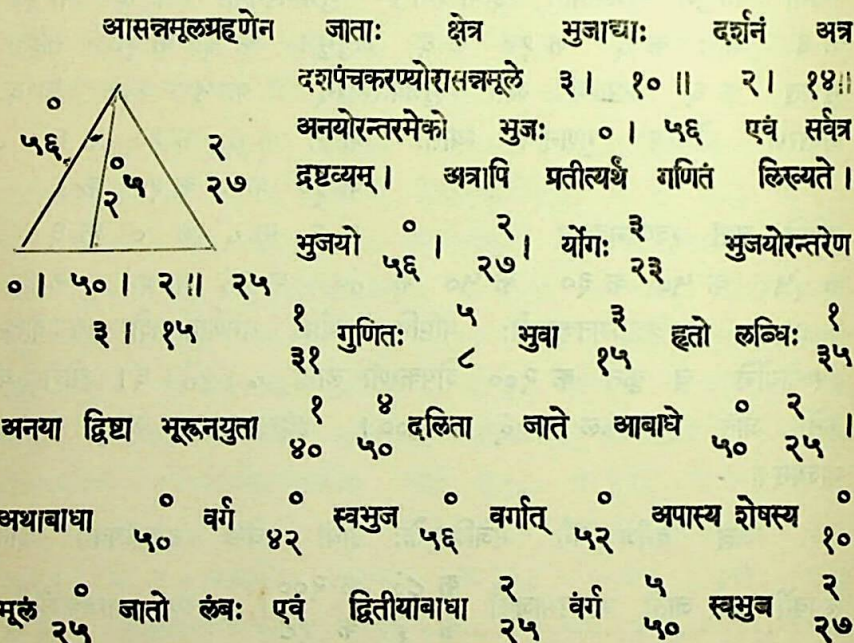 आसन्नमूलग्रहणेन जाताः क्षेत्र भुजाद्याः दर्शनं अत्र
दशपंचकरण्योरासन्नमूले ३। १०॥ २। १४॥
० ५६ ० ५ २ २ २७
अनयोरन्तरमेको भुजः ०। ५६ एवं सर्वत्र
द्रष्टव्यम्। अत्रापि प्रतीत्यर्थं गणितं लिख्यते।
भुजयो ० ५६ । २ २७ । र्योगः ३ २३ भुजयोरन्तरेण
०। ५०। २॥ २५
३। १५
१ ३१ गुणितः ५ ८ भुवा ३ १५ हृतो लब्धिः १ ३५
अनया द्विष्टा भूरूनयुता १ ४० ४ ५० दलिता जाते आबाधे ० ५० २ २५ ।
अथाबाधा ० ५० वर्ग ० ४२ स्वभुज ० ५६ वर्गात् ० ५२ अपास्य शेषस्य ० १०
मूलं ० २५ जातो लंबः एवं द्वितीयाबाधा २ २५ वंर्ग ५ ५० स्वभुब २ २७